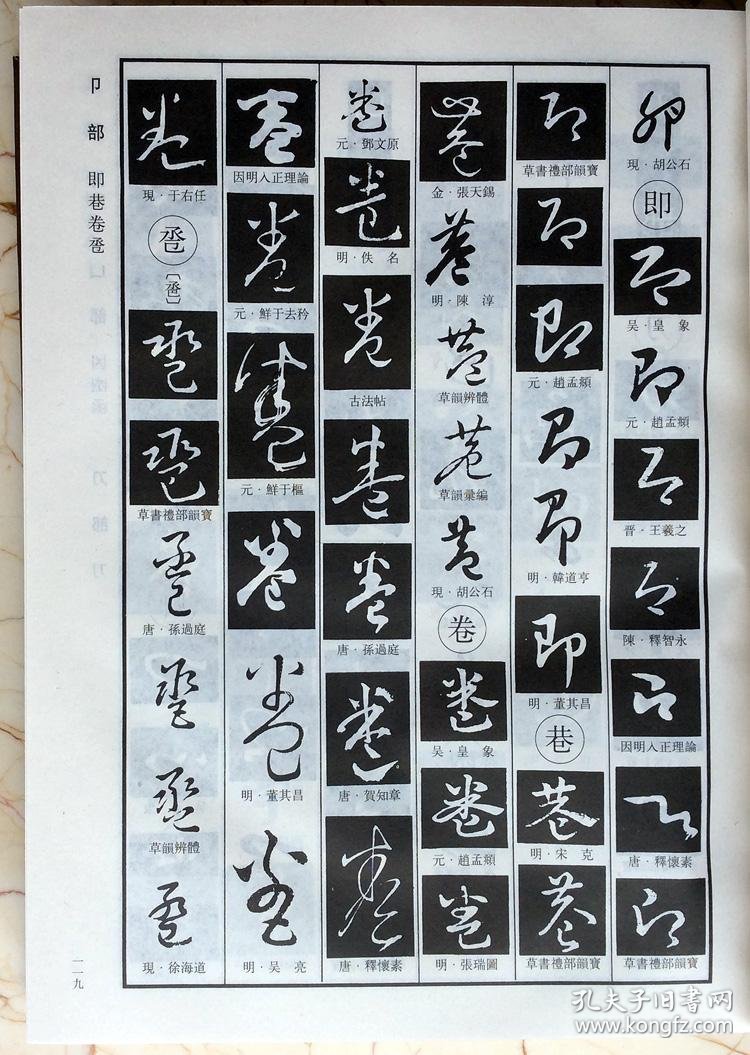 卩部 即巷卷卺
卵
現·胡公石
即
吴·皇象
元·趙孟頫
晋·王羲之
陳·釋智永
因明入正理論
唐·釋懷素
草書禮部韻寶
草書禮部韻寶
元·趙孟頫
明·韓道亨
明·董其昌
巷
明·宋克
草書禮部韻寶
金·張天錫
明·陳淳
草韻辨體
草韻彙編
現·胡公石
卷
吴·皇象
元·趙孟頫
明·張瑞圖
元·鄧文原
明·佚名
古法帖
唐·孫過庭
唐·賀知章
唐·釋懷素
因明入正理論
元·鮮于去矜
元·鮮于樞
明·董其昌
明·吴亮
現·于右任
卺
草書禮部韻寶
唐·孫過庭
草韻辨體
現·徐海道
一一九
孔夫子旧书网
www.kongfz.com